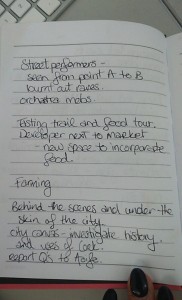 Street performers -
seen from point A to B
burnt out cases.
orchestra mobs.
Tasting trail and food tour.
Developer next to market
- new space to incorporate
food.
Farming
Behind the scenes and under the
skin of the city.
city canvas - investigate history
and uses of Cork.
export Q's to Apple.